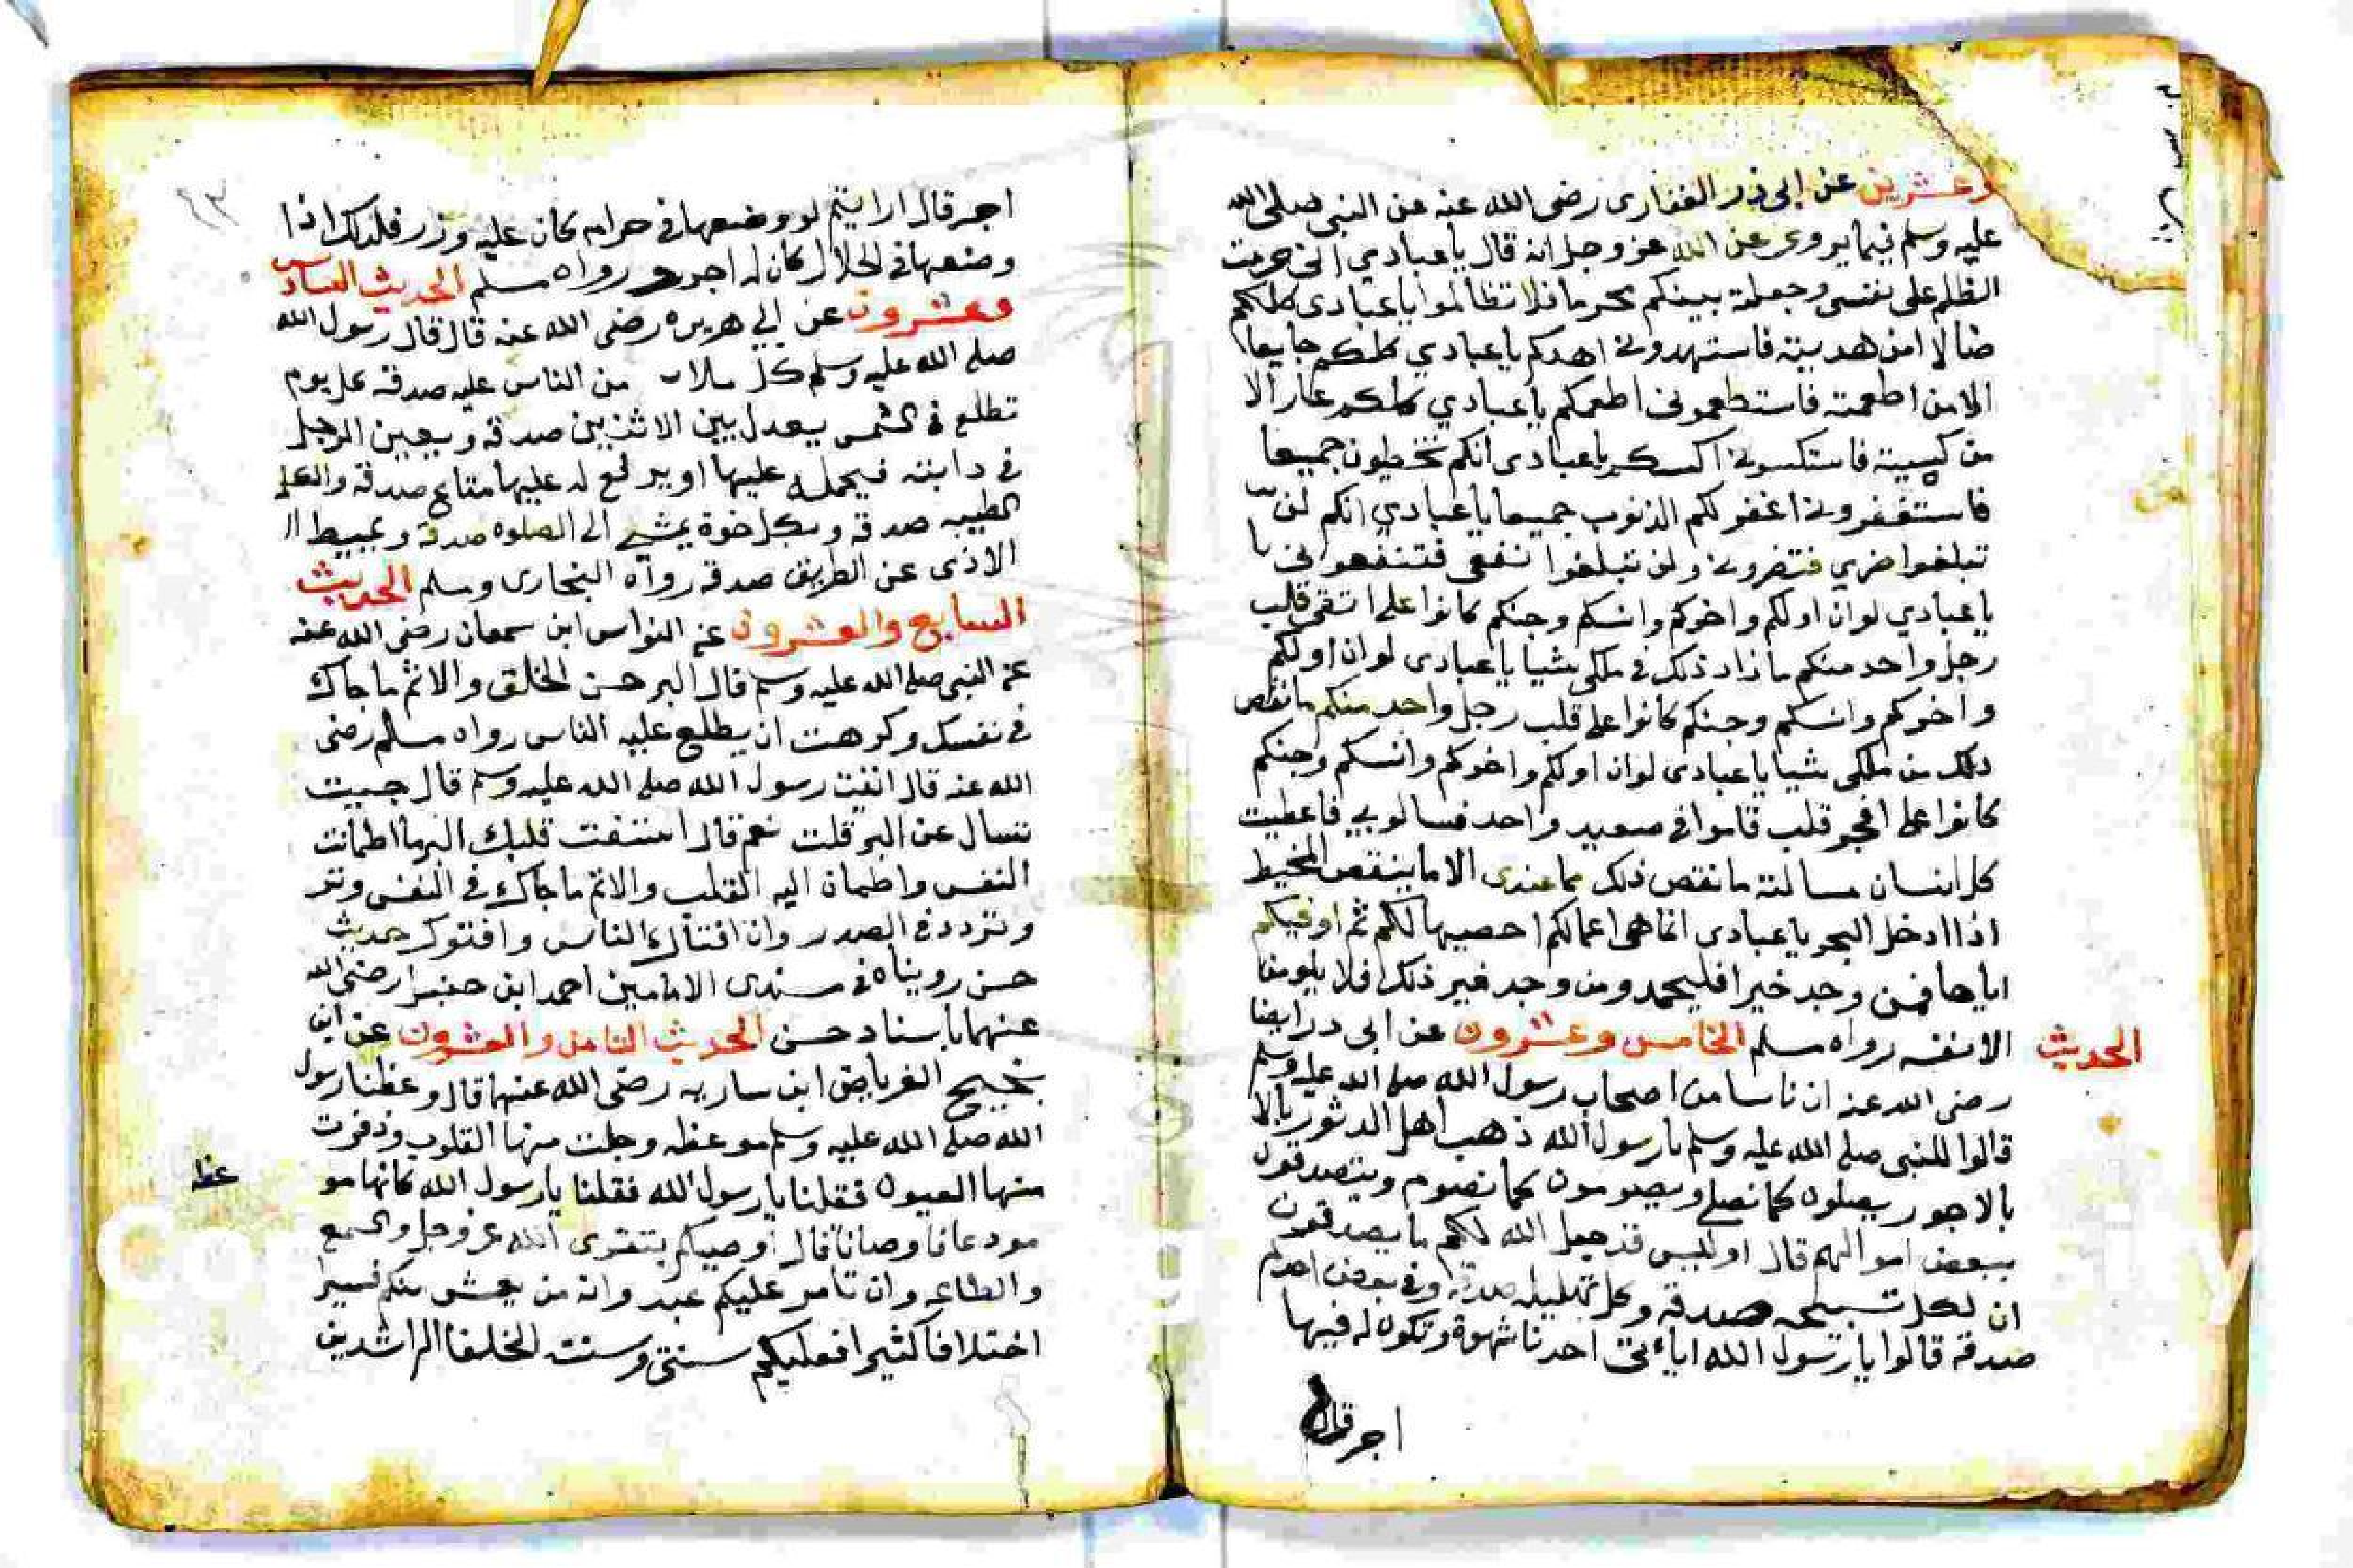 وعشرين عن ابي ذر الغفارى رضى الله عنه عن النبي صلى الله
عليه وسلم فيما يروى عن الله عز وجل انه قال يا عبادي انى حرمت
الظلم على نفسى وجعلته بينكم محرما فلا تظالموا يا عبادى كلكم
ضالا امن هديته فاستهدونى اهدكم يا عبادي كلكم جايعا
الامن اطعمته فاستطعمونى اطعمكم يا عبادي كلكم عار الا
من كسيته فاستكسونى اكسكم يا عبادى انكم تخطيون جميعا
فاستغفرونى اغفر لكم الذنوب جميعا يا عبادي انكم لن
تبلغوا ضري فتضرونى ولن تبلغوا نفعى فتنفعونى يا
يا عبادي لو ان اولكم واخركم وانسكم وجنكم كانوا على اتقى قلب
رجل واحد منكم ما زاد ذلك في ملكى شيا يا عبادى لو ان اولكم
واخركم وانسكم وجنكم كانوا على قلب رجل واحد منكم ما نقص
ذلك من ملكى شيا يا عبادى لو ان اولكم واخركم وانسكم وجنكم
كانوا على افجر قلب قاموا في صعيد واحد فسالوني فاعطيت
كل انسان مسالته ما نقص ذلك مما عندى الا ما ينقص المخيط
اذا ادخل البحر يا عبادى انما هي اعمالكم احصيها لكم ثم اوفيكم
اياها فمن وجد خيرا فليحمد ومن وجد غير ذلك فلا يلومنا
الا نفسه رواه مسلم الخامس وعشرون عن ابى ذر ايضا
الحديث
رضى الله عنه ان ناسا من اصحاب رسول الله صلى الله عليه وسلم
قالوا للنبي صلى الله عليه وسلم يا رسول الله ذهب اهل الدثور بالا
بالاجور يصلون كما نصلي ويصومون كما نصوم ويتصدقون
ببعض اموالهم قال اوليس قد جعل الله لكم ما يصدقون
ان لكل تسبيحه صدقة وكل تهليله صدقة وفي بعض احدكم
صدقة قالوا يا رسول الله اياءتى احدنا شهوة وتكون له فيها
اجر قال
اجر قال ارايتم لو وضعها في حرام كان عليه وزر فلذلك اذا
وضعها في الحلال كان له اجر رواه مسلم الحديث السادس
وعشرون عن ابي هريره رضى الله عنه قال قال رسول الله
صلى الله عليه وسلم كل سلاب من الناس عليه صدقة كل يوم
تطلع في الشمس يعدل بين الاثنين صدقة ويعين الرجل
في دابته فيحمله عليها او يرفع له عليها متاع صدقة والكلم
الطيبه صدقة وبكل خوة يمشي الى الصلوه صدقة ويميط ال
الاذى عن الطريق صدقة رواه البخارى ومسلم الحديث
السابع والعشرون عن النواس ابن سمعان رضى الله عنه
عن النبي صلى الله عليه وسلم قال البر حسن الخلق والاثم ما حاك
في نفسك وكرهت ان يطلع عليه الناس رواه مسلم رضى
الله عنه قال اتيت رسول الله صلى الله عليه وسلم قال جيت
تسال عن البر قلت نعم قال استفت قلبك البر ما اطمانت
النفس واطمان اليه القلب والاثم ما حاك في النفس وتر
وتردد في الصدر وان افتاك الناس وافتوك حديث
حسن رويناه في مسندى الامامين احمد ابن حنبل رضى الله
عنهما باسناد حسن الحديث الثامن والعشرون عن ابي
نجيح العرباض ابن ساريه رضى الله عنهما قال وعظنا رسول
الله صلى الله عليه وسلم موعظه وجلت منها القلوب وذفرت
منها العيون فقلنا يا رسول الله فقلنا يا رسول الله كانها مو
عظه
مودعا فاوصانا قال اوصيكم بتقوى الله عز وجل والسمع
والطاعه وان تامر عليكم عبد وانه من يعش منكم فسيرا
اختلافا كثيرا فعليكم بسنتى وسنت الخلفا الراشدين